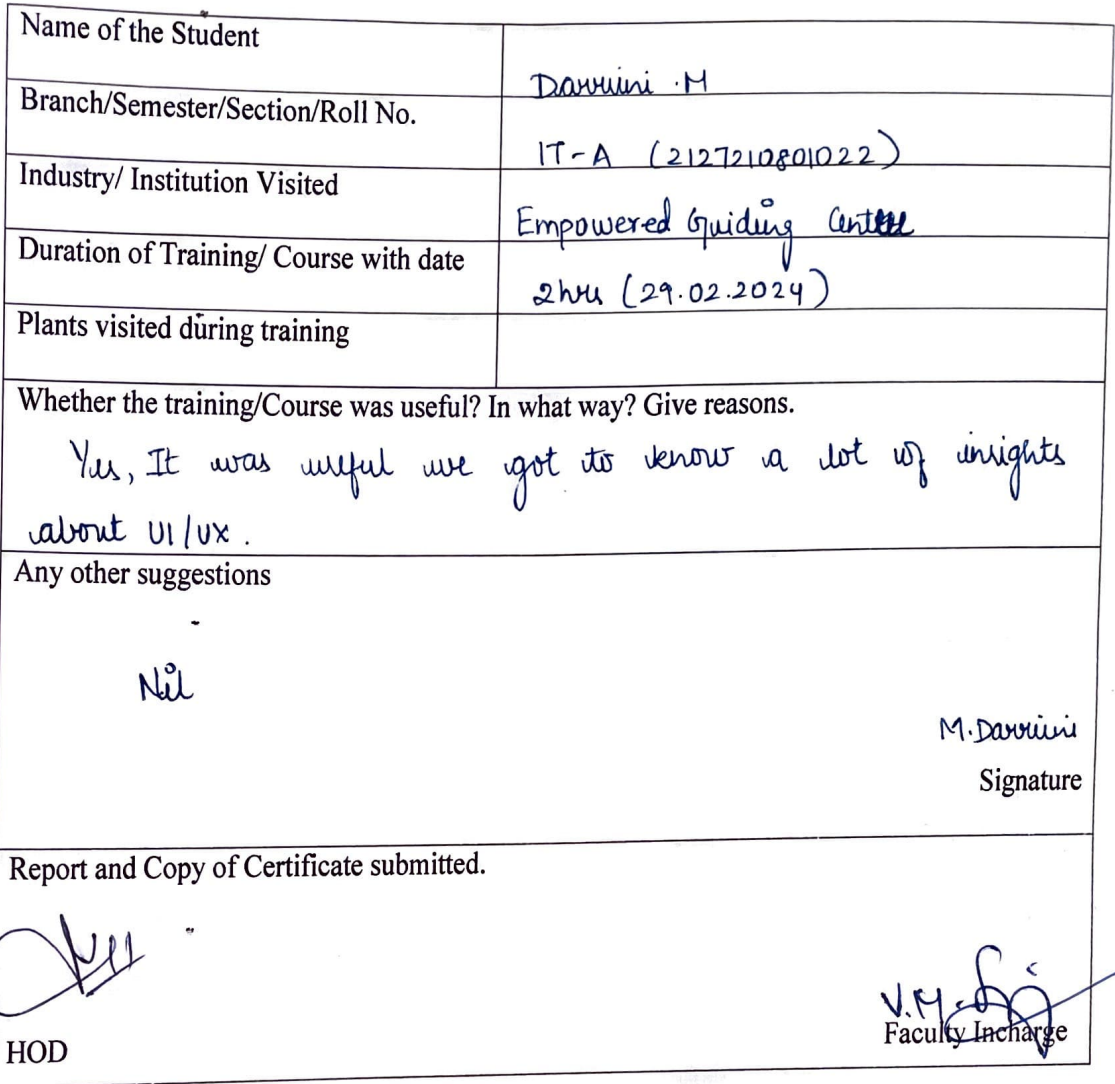 Name of the Student
Darruini .M
Branch/Semester/Section/Roll No.
IT-A (2127210801022)
Industry/ Institution Visited
Empowered Guiding Centre
Duration of Training/ Course with date
2hrs (29.02.2024)
Plants visited during training
Whether the training/Course was useful? In what way? Give reasons.
Yes, It was useful we got to know a lot of insights
about UI/UX.
Any other suggestions
Nil
M.Darruini
Signature
Report and Copy of Certificate submitted.
V.M.
HOD
Faculty Incharge